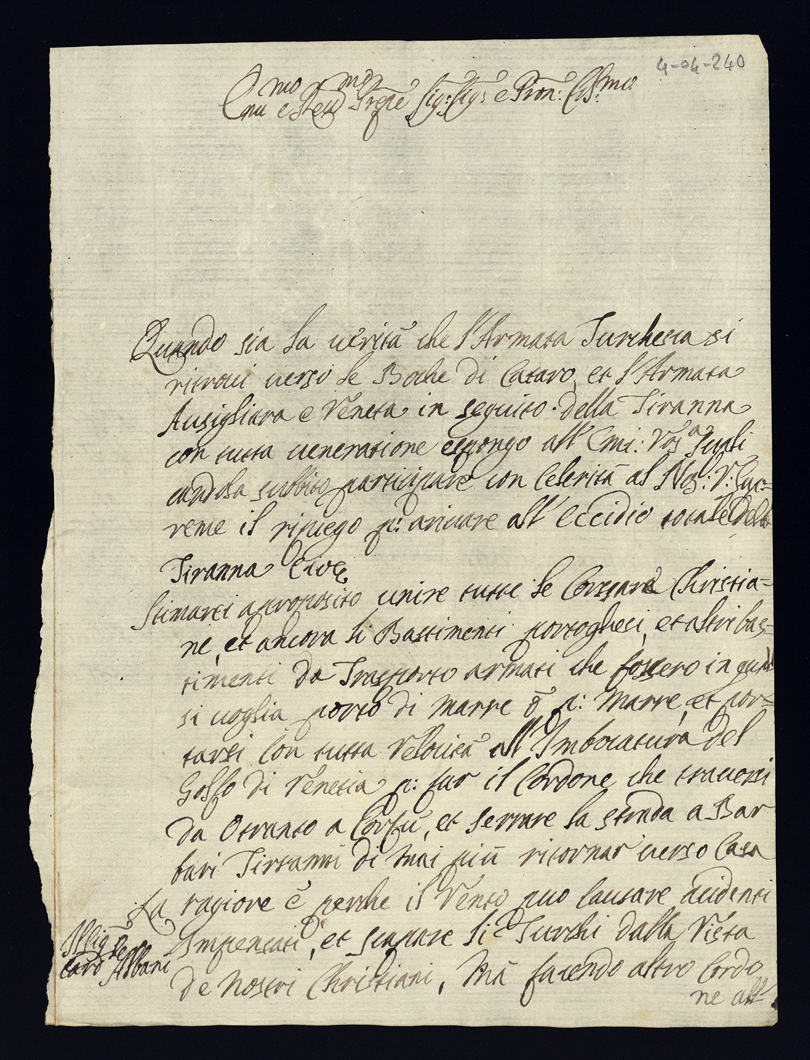 4-04-240
Emo e Reumo Prpe Sig: Sig: e Pron: Colmo
Quando sia la verità che l'Armata Turchesca si
ritrovi verso le Boche di Cataro, et l'Armata
Ausigliara e Veneta in seguito della Tiranna
con tutta veneratione espongo all' Emi: Vos:
subbito participare con Celerità al
il ripiego p: arivare all' eccidio totale della
Tiranna Cioè
Stimarei aproposito unire tutte le Corsare Christia=
ne, et ancora li Bastimenti portoghesi, et altri bas=
timenti da Trasporto armati che fossero in qual
si voglia porto di marre ò p: Marre, et por=
tarsi con tutta Velocità all' Imbocatura del
Golfo di Venetia p: far il Cordone che traversi
da Otranto a Corfù, et serrare la strada a Bar
bari Tiranni di mai più ritornar verso Casa
La ragione è perche il Vento puo causare acidenti
Impensati, et scapare li Turchi dalla Vista
de Nostri Christiani, Mà facendo altro Cordo
ne all'
Sig:
Card Albani